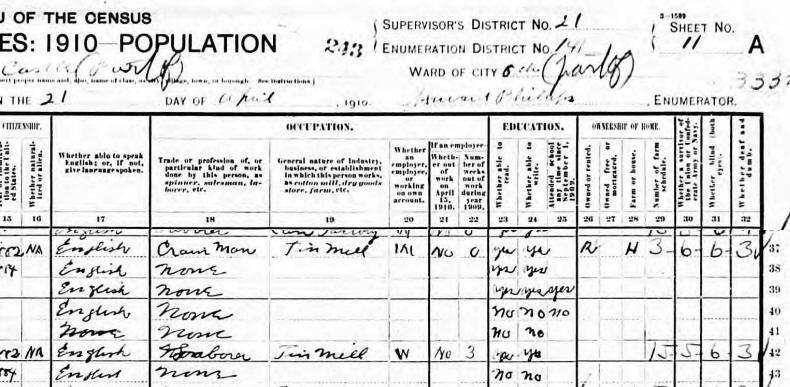 U OF THE CENSUS
ES: 1910 POPULATION
243
SUPERVISOR'S DISTRICT NO. 21
ENUMERATION DISTRICT NO. 141
WARD OF CITY 6th (part of)
3-1589
SHEET NO.
11 A
Castle (Part of)
ert proper name and, also, name of class, as city, village, town, or borough. See instructions.)
N THE 21 DAY OF April, 1910. Howard Phillips, ENUMERATOR.
CITIZENSHIP.
OCCUPATION.
EDUCATION.
OWNERSHIP OF HOME.
Whether naturalized or alien.
Whether able to speak English; or, if not, give language spoken.
Trade or profession of, or particular kind of work done by this person, as spinner, salesman, laborer, etc.
General nature of industry, business, or establishment in which this person works, as cotton mill, dry goods store, farm, etc.
Whether an employer, employee, or working on own account.
If an employee—
Whether out of work on April 15, 1910.
Number of weeks out of work during year 1909.
Whether able to read.
Whether able to write.
Attended school any time since September 1, 1909.
Owned or rented.
Owned free or mortgaged.
Farm or house.
Number of farm schedule.
Whether a survivor of the Union or Confederate Army or Navy.
Whether blind (both eyes).
Whether deaf and dumb.
15 16 17 18 19 20 21 22 23 24 25 26 27 28 29 30 31 32
NA English Crane Man Tin Mill W No 0 yes yes R H 3-6-6-3 37
English None yes yes 38
English None yes yes yes 39
English None no no no 40
None None no no 41
NA English Laborer Tin Mill W No 3 yes yes 15-5-6-3 42
English None no no 43